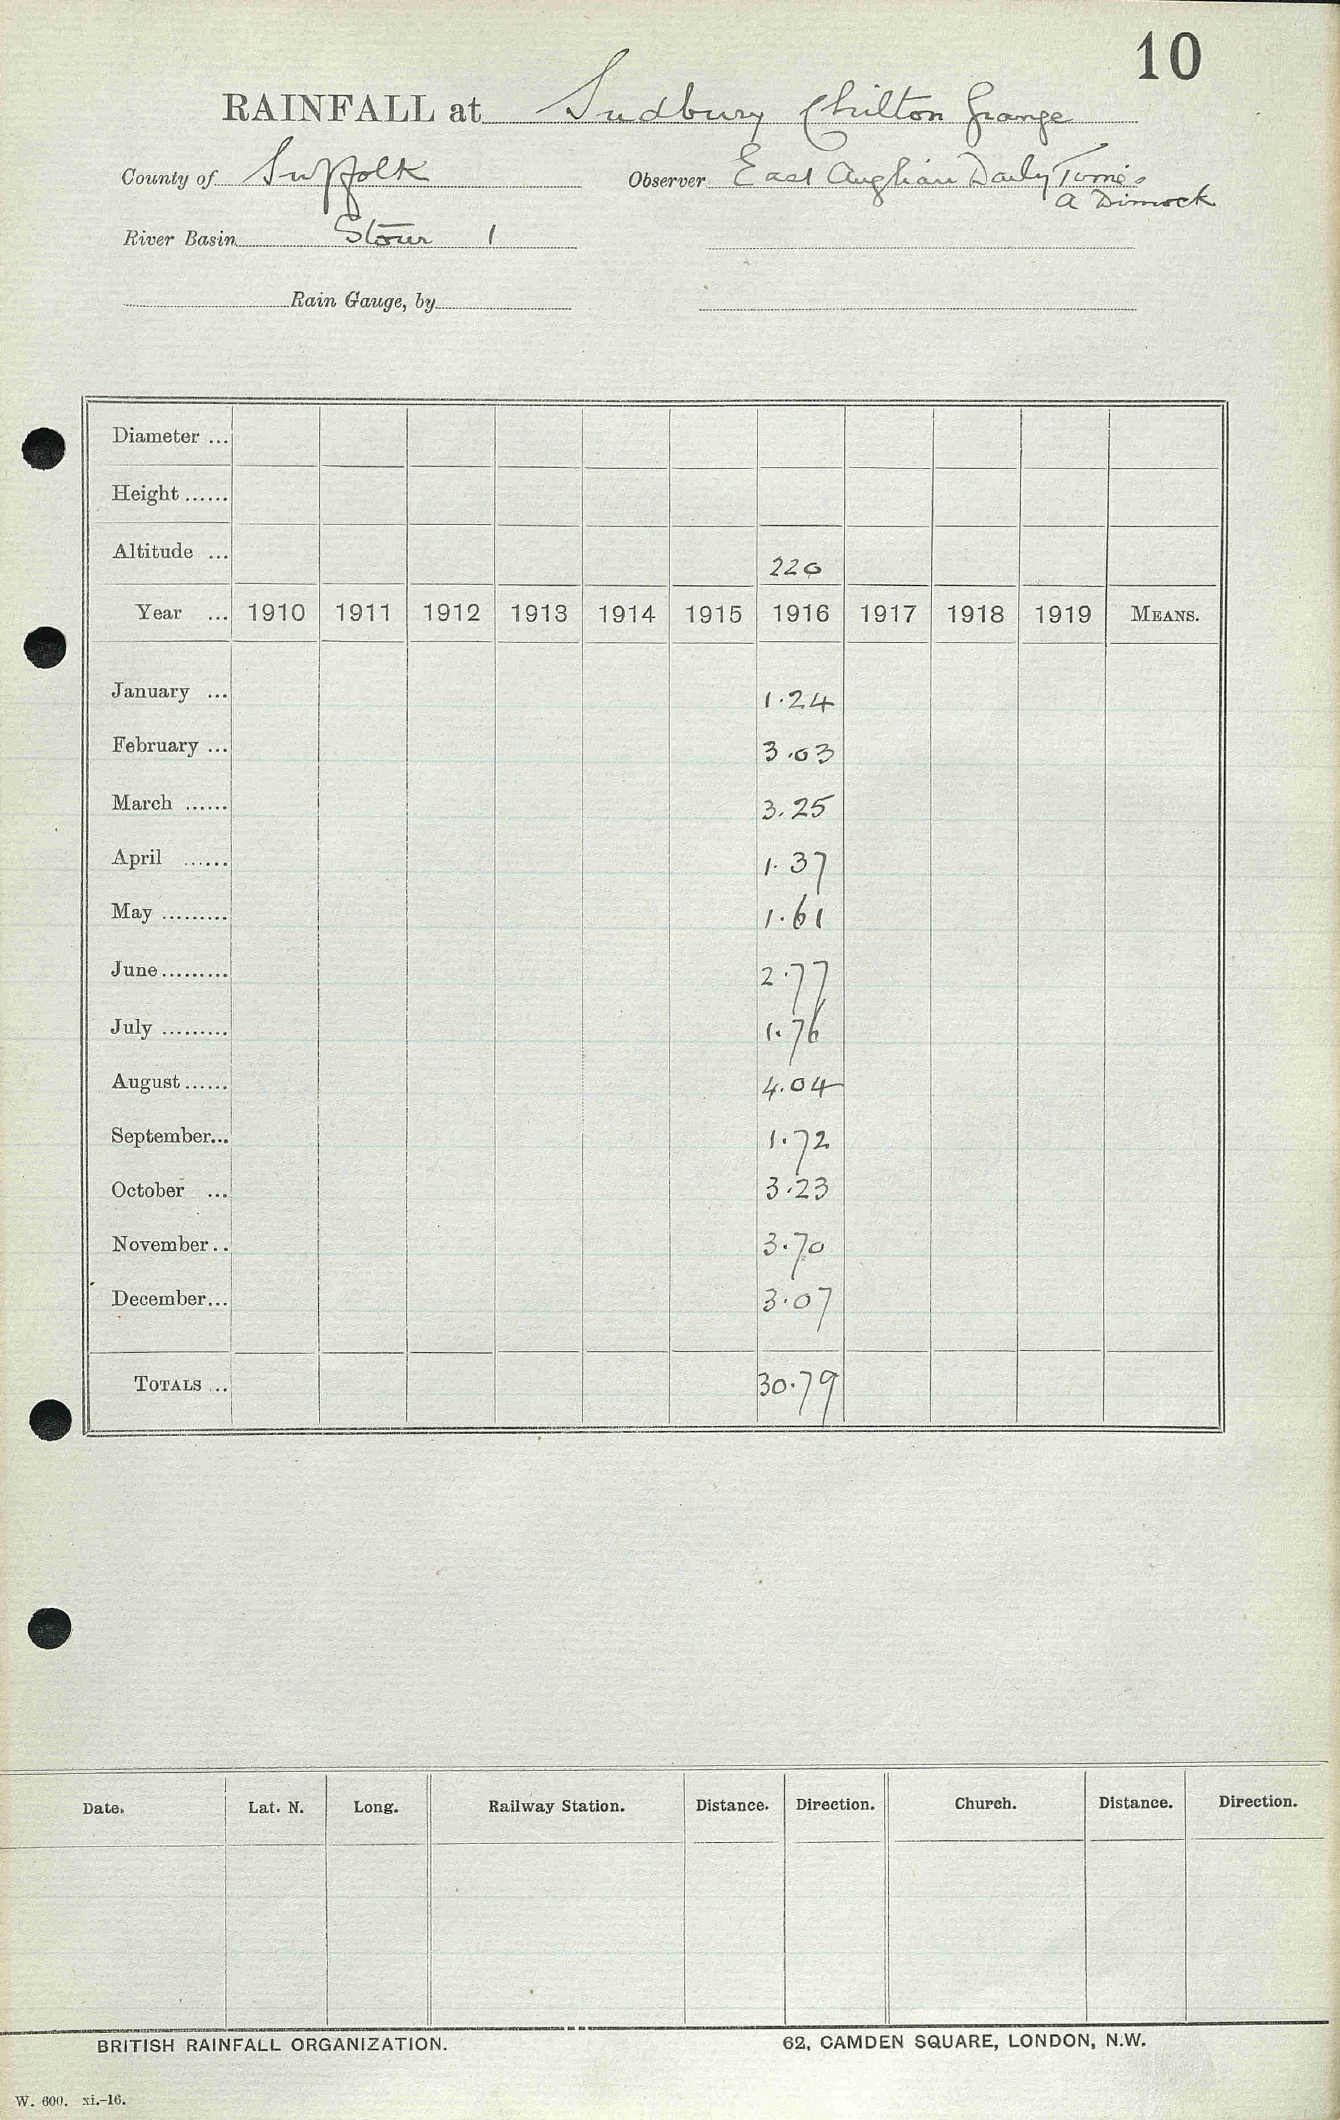 10
RAINFALL at Sudbury Chilton Grange
County of Suffolk Observer East Anglian Daily Times
A Dimock
River Basin Stour 1
Rain Gauge, by
Diameter ...
Height ......
Altitude ... 220
Year ... 1910 1911 1912 1913 1914 1915 1916 1917 1918 1919 MEANS.
January ... 1.24
February ... 3.03
March ...... 3.25
April ...... 1.37
May ......... 1.61
June ......... 2.77
July ......... 1.76
August ...... 4.04
September... 1.72
October ... 3.23
November.. 3.70
December... 3.07
TOTALS ... 30.79
Date. Lat. N. Long. Railway Station. Distance. Direction. Church. Distance. Direction.
BRITISH RAINFALL ORGANIZATION. 62, CAMDEN SQUARE, LONDON, N.W.
W. 600. xi.-16.